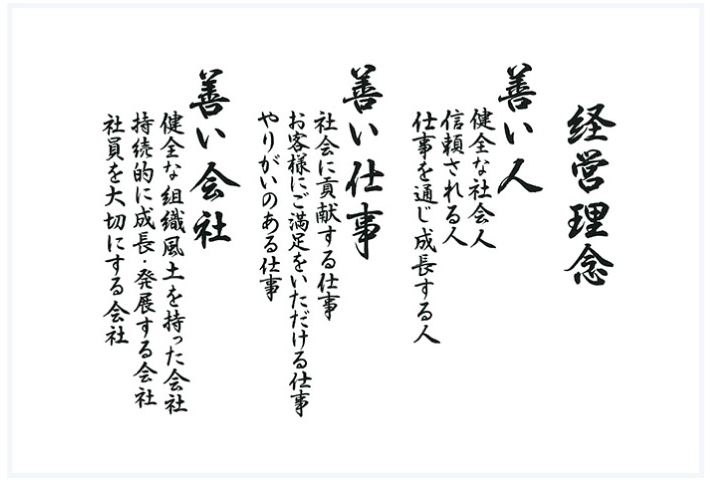 経営理念
善い人
健全な社会人
信頼される人
仕事を通じ成長する人
善い仕事
社会に貢献する仕事
お客様にご満足をいただける仕事
やりがいのある仕事
善い会社
健全な組織風土を持った会社
持続的に成長・発展する会社
社員を大切にする会社